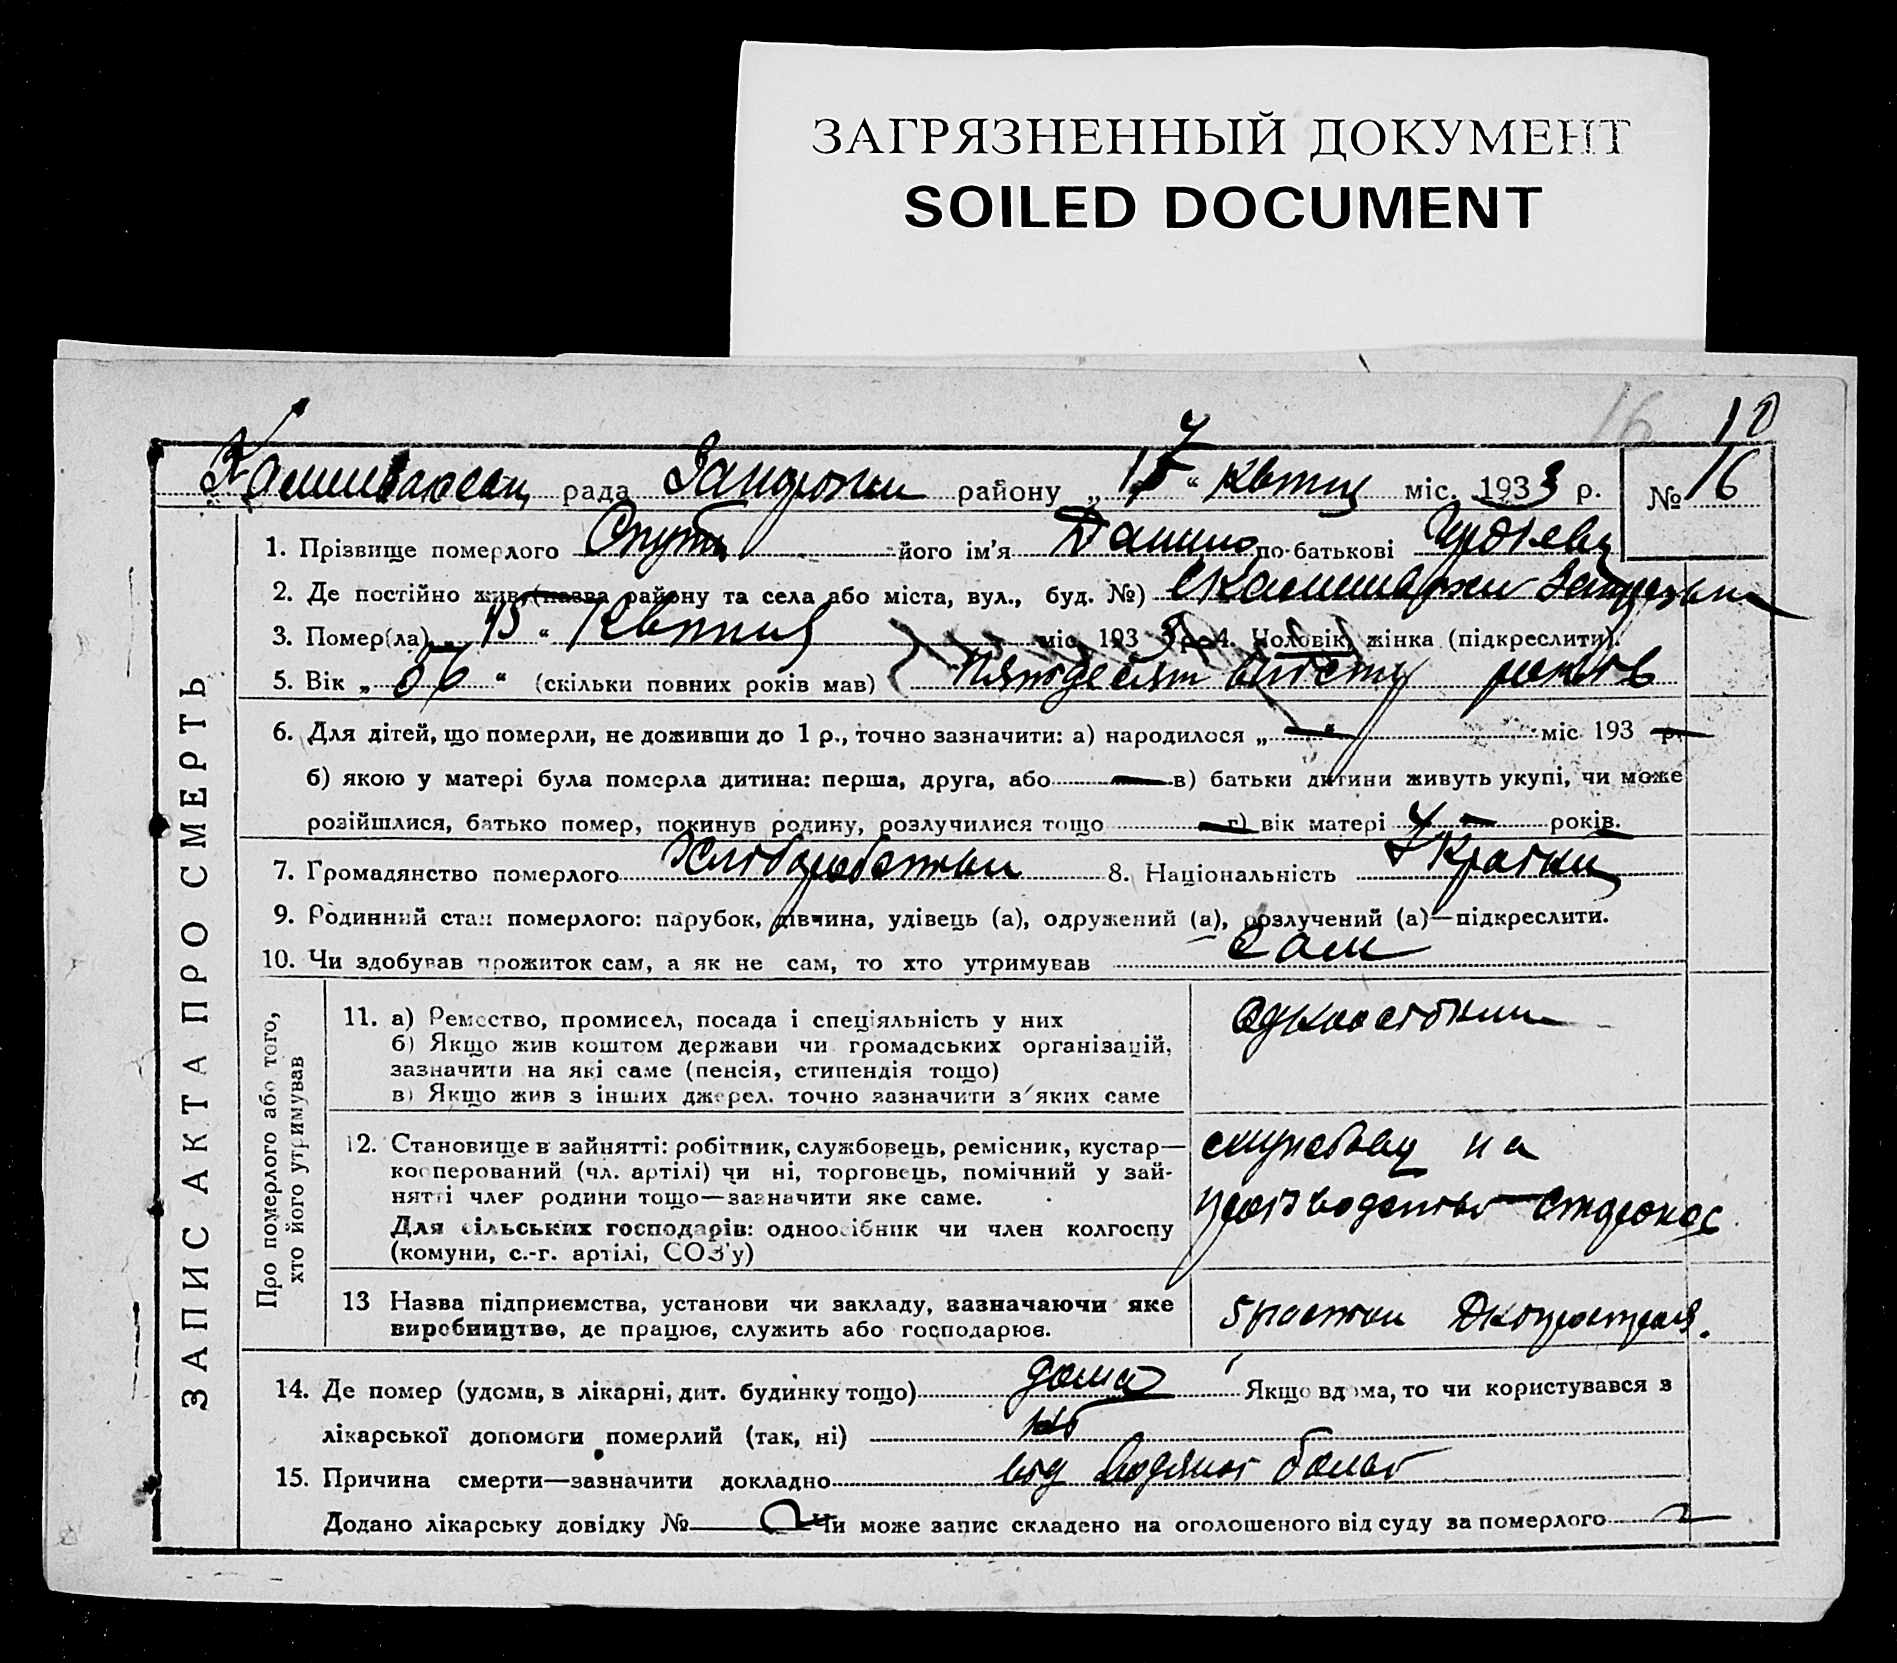 ЗАГРЯЗНЕННЫЙ ДОКУМЕНТ
SOILED DOCUMENT
16 10
рада району „17“ квітня міс. 1933 р. № 16
ЗАПИС АКТА ПРО СМЕРТЬ
1. Прізвище померлого його ім'я Данило по-батькові
2. Де постійно жив (назва району та села або міста, вул., буд. №)
3. Помер(ла) „15“ Квітня міс. 1933 р. 4. Чоловік, жінка (підкреслити).
5. Вік „56“ (скільки повних років мав) Пятдесят шість років
6. Для дітей, що померли, не доживши до 1 р., точно зазначити: а) народилося „ — “ міс. 193 — р.
б) якою у матері була померла дитина: перша, друга, або — в) батьки дитини живуть укупі, чи може
розійшлися, батько помер, покинув родину, розлучилися тощо — г) вік матері — років.
7. Громадянство померлого 8. Національність Україн
9. Родинний стан померлого: парубок, дівчина, удівець (а), одружений (а), розлучений (а)—підкреслити.
10. Чи здобував прожиток сам, а як не сам, то хто утримував сам
Про померлого або того, хто його утримував
11. а) Ремество, промисел, посада і спеціяльність у них
б) Якщо жив коштом держави чи громадських організацій,
зазначити на які саме (пенсія, стипендія тощо)
в) Якщо жив з інших джерел. точно зазначити з яких саме
12. Становище в зайнятті: робітник, службовець, ремісник, кустар—
кооперований (чл. артілі) чи ні, торговець, помічний у зай-
нятті член родини тощо—зазначити яке саме.
Для сільських господарів: одноосібник чи член колгоспу
(комуни, с.-г. артілі, СОЗ'у)
на
13 Назва підприємства, установи чи закладу, зазначаючи яке
виробництво, де працює, служить або господарює.
14. Де помер (удома, в лікарні, дит. будинку тощо) дома Якщо вдома, то чи користувався з
лікарської допомоги померлий (так, ні) ні
15. Причина смерти—зазначити докладно від
Додано лікарську довідку № Чи може запис складено на оголошеного від суду за померлого